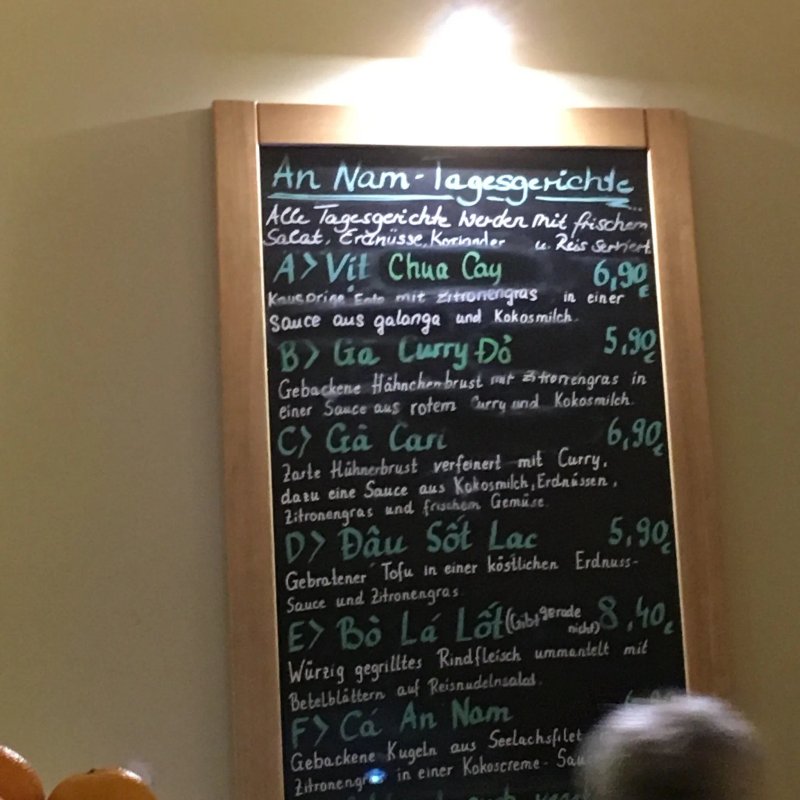 An Nam-Tagesgerichte
Alle Tagesgerichte werden mit frischem
Salat, Erdnüsse, Koriander u. Reis serviert
A> Vit Chua Cay 6,90 €
Knusprige Ente mit Zitronengras in einer
Sauce aus galanga und Kokosmilch.
B> Ga Curry Đỏ 5,90 €
Gebackene Hähnchenbrust mit Zitronengras in
einer Sauce aus rotem Curry und Kokosmilch.
C> Gà Cari 6,90 €
Zarte Hühnerbrust verfeinert mit Curry,
dazu eine Sauce aus Kokosmilch, Erdnüssen,
Zitronengras und frischem Gemüse.
D> Đâu Sốt Lac 5,90 €
Gebratener Tofu in einer köstlichen Erdnuss-
Sauce und Zitronengras
E> Bò Lá Lốt (Gibt gerade nicht) 8,40 €
Würzig gegrilltes Rindfleisch ummantelt mit
Betelblättern auf Reisnudelnsalad.
F> Cá An Nam
Gebackene Kugeln aus Seelachsfilet
Zitronengras in einer Kokoscreme-Sau